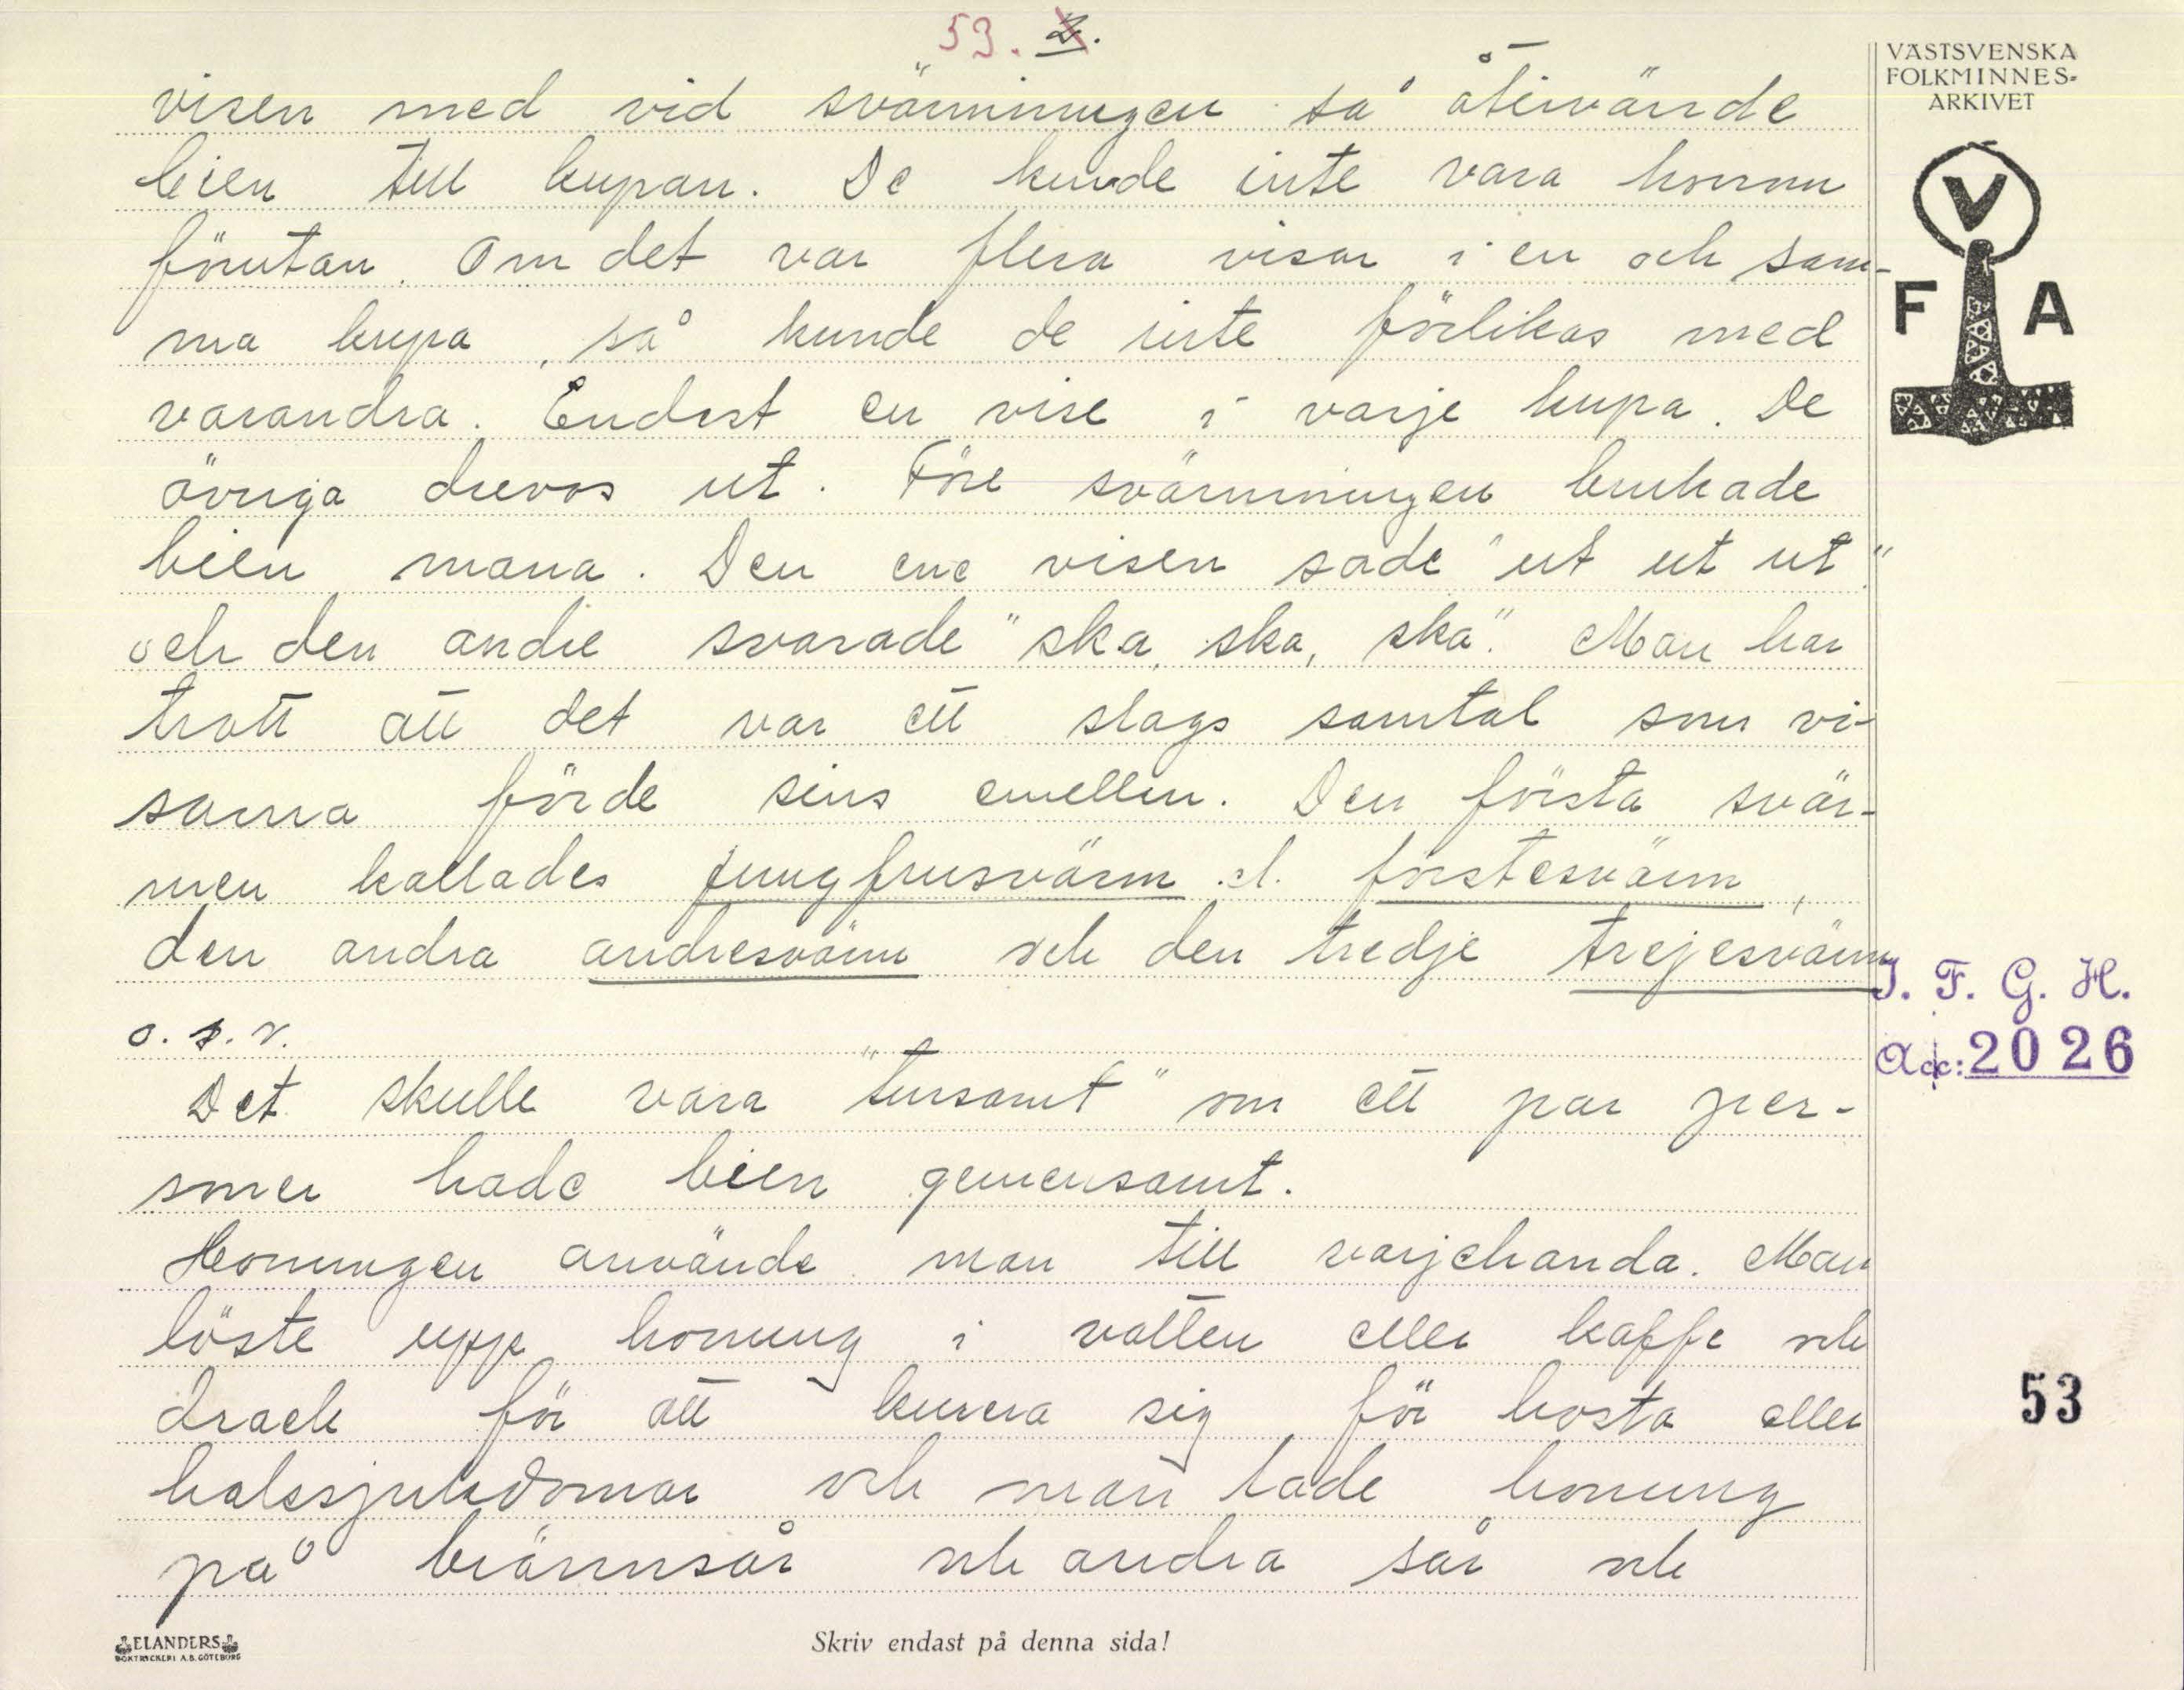 53. 2.
visen med vid svärmningen så återvände
bien till kupan. De kunde inte vara honom
förutan. Om det var flera visar i en och sam-
ma kupa, så kunde de inte förlikas med
varandra. Endast en vise i varje kupa. De
övriga drevos ut. Före svärmningen brukade
bien mana. Den ene visen sade "ut ut ut"
och den andre svarade "ska, ska, ska". Man har
trott att det var ett slags samtal som vi-
sarna förde sins emellan. Den första svär-
men kallades jungfrusvärm el. förstesvärm,
den andra andresvärm och den tredje trejesvärm
o.s.v.
Det skulle vara "tursamt" om ett par per-
soner hade bien gemensamt.
Honungen använde man till varjehanda. Man
löste upp honung i vatten eller kaffe och
drack för att kurera sig för hosta eller
halssjukdomar och man lade honung
på brännsår och andra sår och
VÄSTSVENSKA
FOLKMINNES-
ARKIVET
V
F A
I. F. G. H.
Acc: 2026
53
ELANDERS
BOKTRYCKERI A.B. GÖTEBORG
Skriv endast på denna sida!